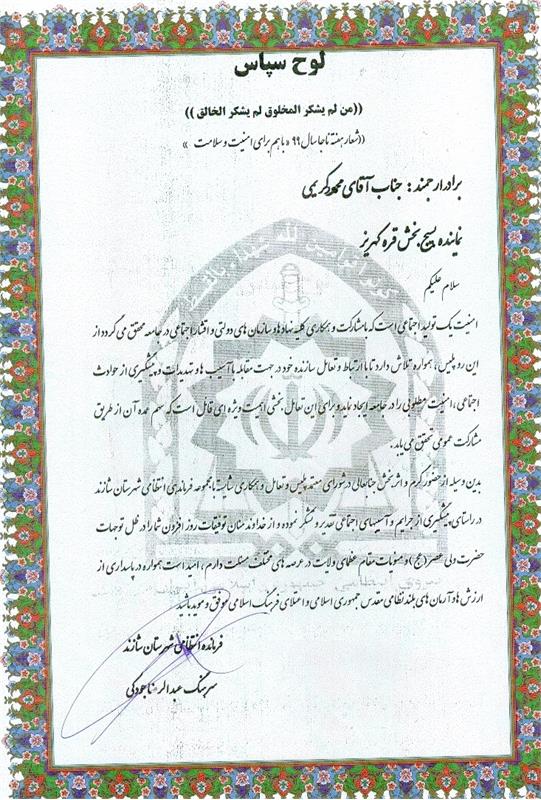 لوح سپاس
((من لم یشکر المخلوق لم یشکر الخالق ))
((شعار هفته ناجا سال ۹۹ « با هم برای امنیت و سلامت »
برادر ارجمند : جناب آقای محمد کریمی
نماینده بسیج بخش قره کهریز
سلام علیکم
امنیت یک تولید اجتماعی است که با مشارکت و همکاری کلیه نهادها و سازمان های دولتی و اقشار اجتماعی در جامعه محقق می گردد از
این رو پلیس ، همواره تلاش دارد تا با ارتباط و تعامل سازنده خود در جهت مقابله با آسیب ها و تهدیدات و پیشگیری از حوادث
اجتماعی ، امنیت مطلوبی را در جامعه ایجاد نماید و برای این تعامل بخشی اهمیت ویژه ای قائل است که سهم عمده آن از طریق
مشارکت عمومی تحقق می یابد .
بدین وسیله از حضور گرم و اثر بخش جنابعالی در شورای معتمد پلیس و تعامل و همکاری شایسته با مجموعه فرماندهی انتظامی شهرستان شازند
در راستای پیشگیری از جرایم و آسیبهای اجتماعی تقدیر و تشکر نموده و از خداوند منان توفیقات روز افزون شما را در ظل توجهات
حضرت ولی عصر (عج) و منویات مقام عظمای ولایت در عرصه های مختلف مسئلت دارم ، امید است همواره در پاسداری از
ارزش ها و آرمان های بلند نظامی مقدس جمهوری اسلامی و اعتلای فرهنگ اسلامی موفق و موید باشید
فرمانده انتظامی شهرستان شازند
سرهنگ عبدالرضا جودکی